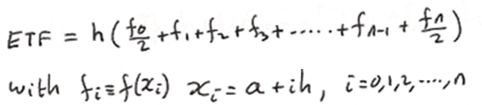 ETF = h(f₀/2 + f₁ + f₂ + f₃ + ..... + fₙ₋₁ + fₙ/2)
with fᵢ ≡ f(xᵢ) xᵢ = a + ih, i=0,1,2,....,n